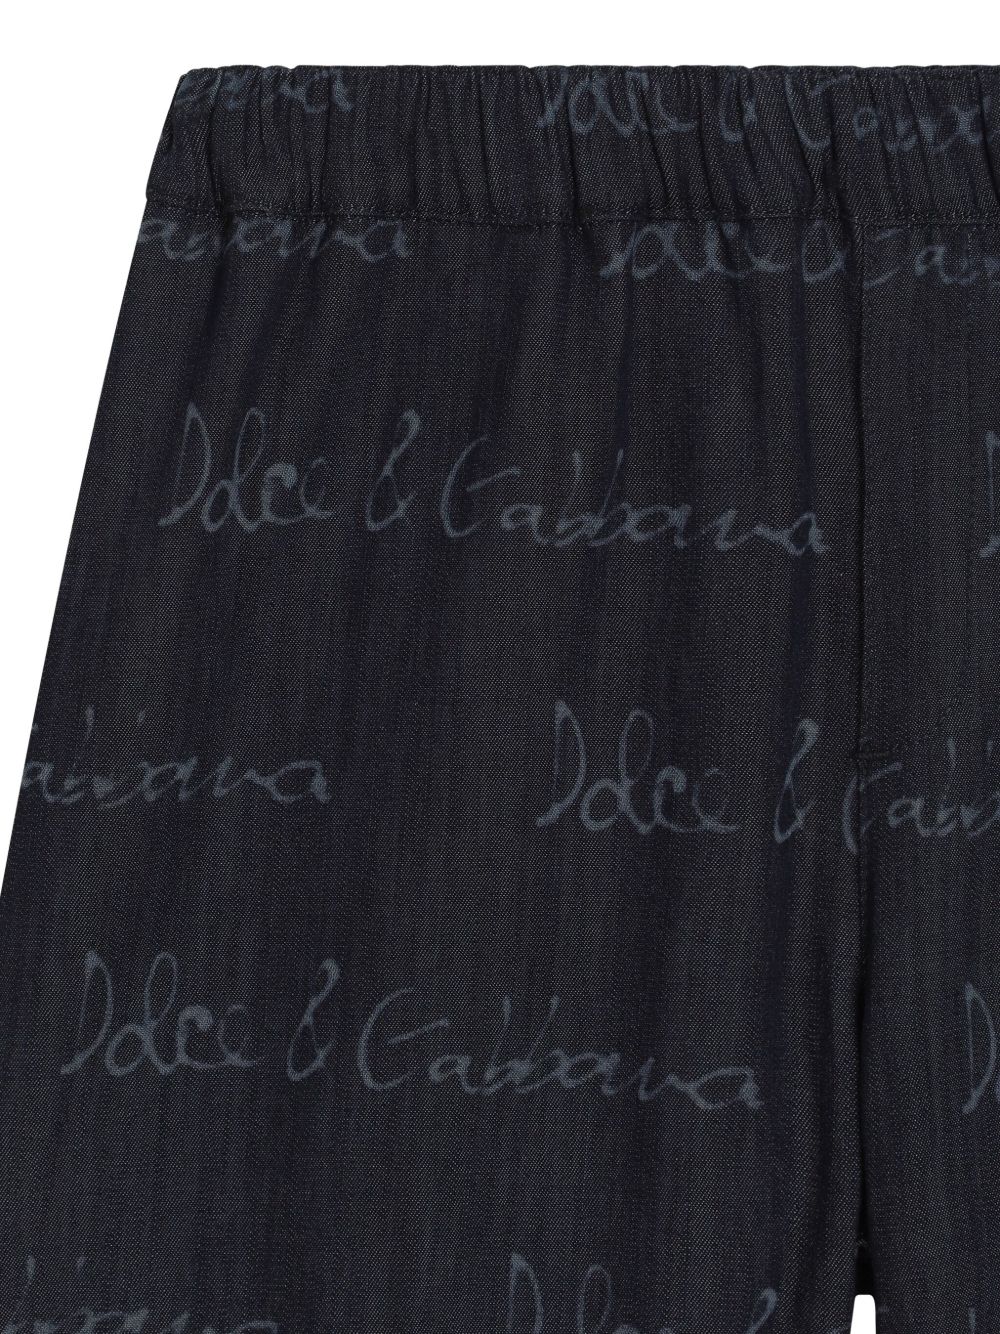 Dolce & Gabbana
Gabbana Dolce & Gabbana
Dolce & Gabbana
Gabbana Dolce & Gabb
Dolce & Gabbana